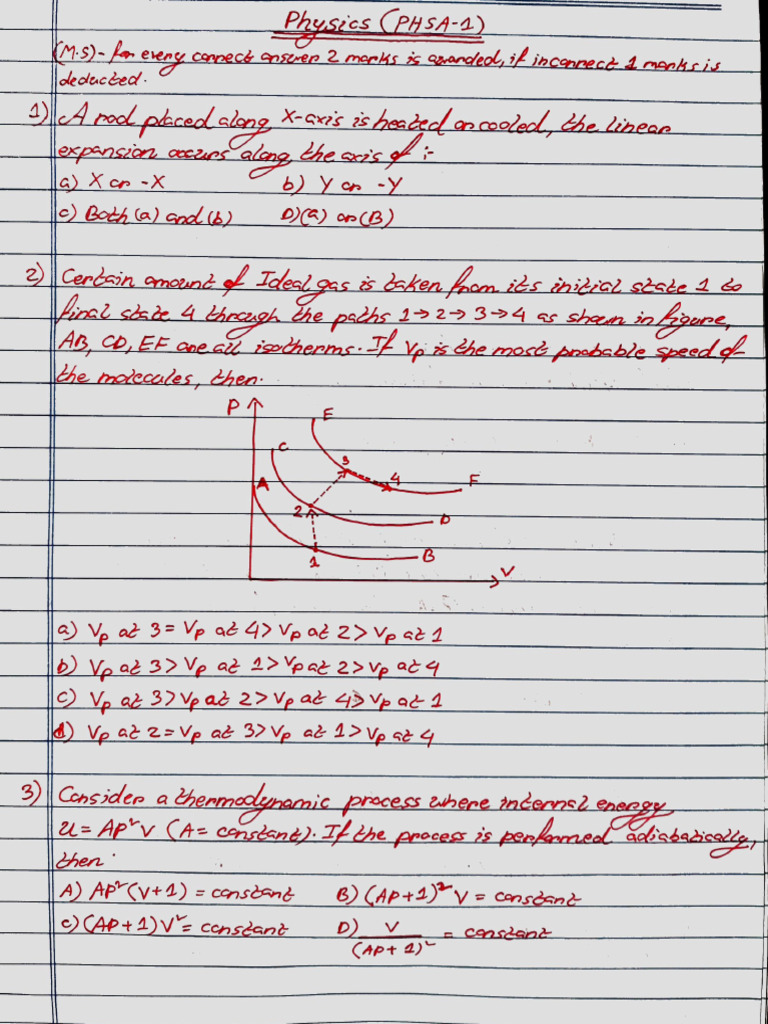 Physics (PHSA-1)
(M.S)- for every correct answer 2 marks is awarded, if incorrect 1 marks is
deducted.
1) A rod placed along X-axis is heated or cooled, the linear
expansion occurs along the axis of :-
a) X or -X b) Y or -Y
c) Both (a) and (b) D)(a) or (B)
2) Certain amount of Ideal gas is taken from its initial state 1 to
final state 4 through the paths 1→2→3→4 as shown in figure,
AB, CD, EF are all isotherms. If Vp is the most probable speed of
the molecules, then.
P E
C
3
A 4 F
2 D
B
1
V
a) Vp at 3 = Vp at 4 > Vp at 2 > Vp at 1
b) Vp at 3 > Vp at 1 > Vp at 2 > Vp at 4
c) Vp at 3 > Vp at 2 > Vp at 4 > Vp at 1
d) Vp at 2 = Vp at 3 > Vp at 1 > Vp at 4
3) Consider a thermodynamic process where internal energy
U = AP²V (A = constant). If the process is performed adiabatically,
then.
A) AP²(V+1) = constant B) (AP+1)²V = constant
c) (AP+1)V² = constant D) V/(AP+1)² = constant